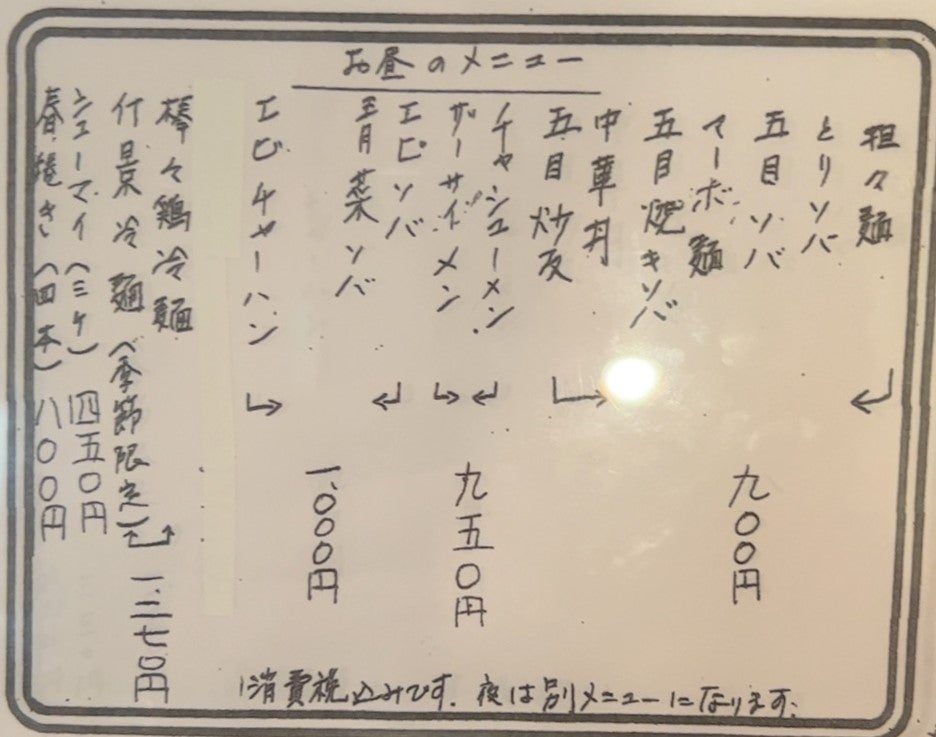 お昼のメニュー
担々麺
とりソバ
五目ソバ
マーボ麺
五目焼きソバ
中華丼
五目炒反
九〇〇円
チャシューメン
ザーサイメン
九五〇円
エビソバ
青菜ソバ
エビチャーハン
一.〇〇〇円
棒々鶏冷麺
什景冷麺(季節限定)
一.三七〇円
シューマイ(三ケ)四五〇円
春捲き(四本)八〇〇円
消費税込みです.夜は別メニューになります.